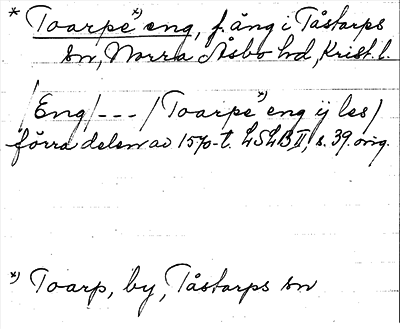 * Toarpe*) eng, f. äng i Tåstarps
sn, Norra Åsbo hd, Krist. l.
/Eng/--- /Toarpe*) eng ij les/
förra delen av 1570-t. LSLB II, s. 39. orig.
*) Toarp, by, Tåstarps sn